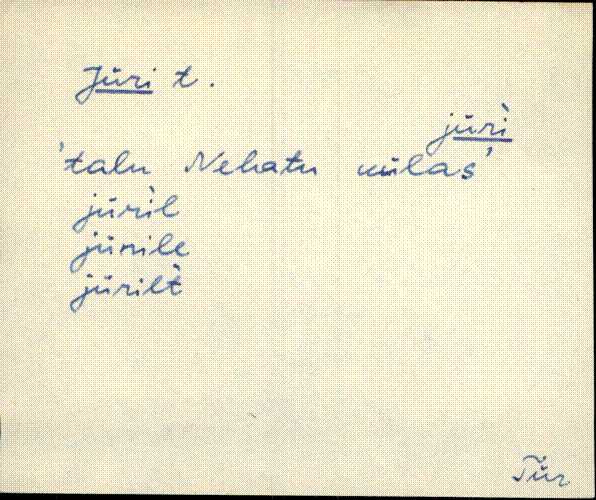 Jüri t.
jüri̇̀
'talu Nehatu külas'
jüri̇̀l
jürile
jürilt̀
Tür